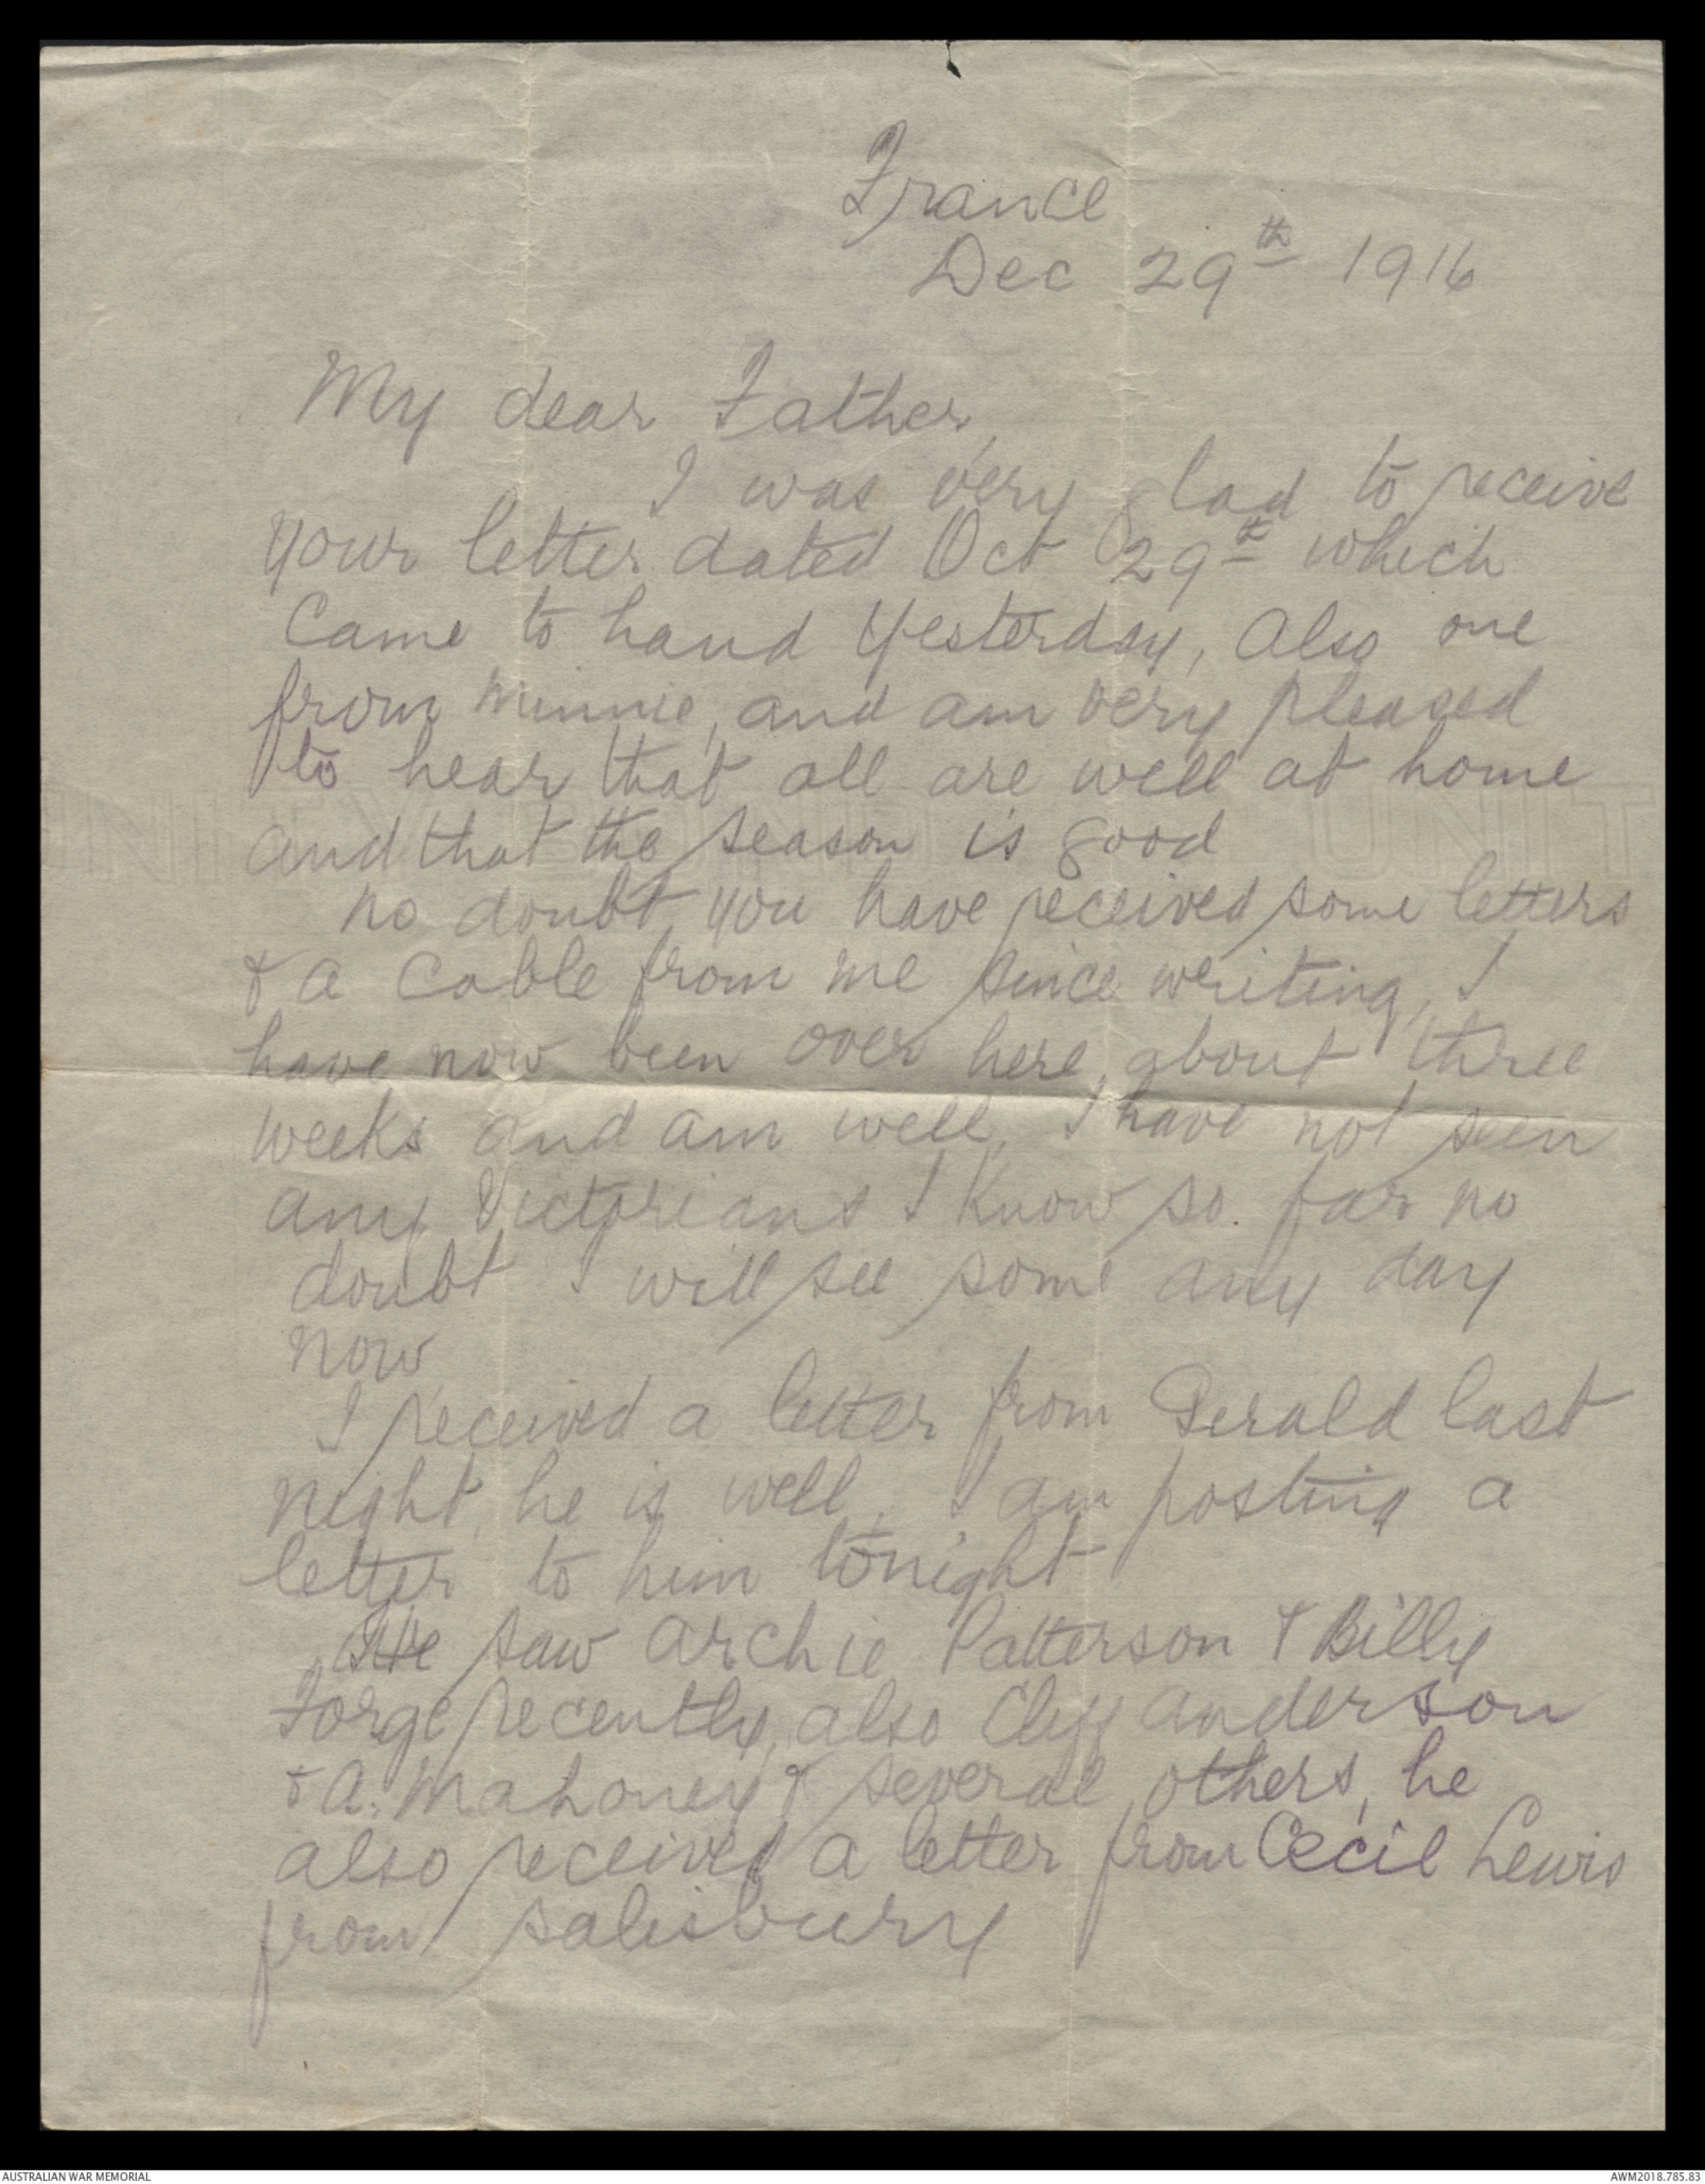 France
Dec 29th 1916
My dear Father,
I was very glad to receive
your letter dated Oct 29th which
Came to hand yesterday, Also one
from Minnie, and am very pleased
to hear that all are well at home
and that the season is good
no doubt you have received some letters
& a Cable from me since writing, I
have now been over here about three
weeks and am well, I have not seen
any Victorians I know so far no
doubt I will see some any day
now
I received a letter from Gerald last
night, he is well, I am posting a
letter to him tonight
He saw Archie Patterson & Billy
Forge recently, also Clyff Anderson
& A. Mahoney & several others, he
also received a letter from Cecil Lewis
from Salisbury
AUSTRALIAN WAR MEMORIAL
AWM2018.785.83